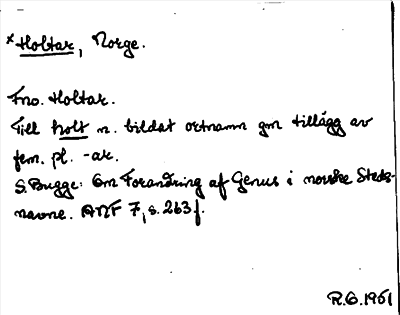 *Holtar, Norge.
Fno. Holtar.
Till holt n. bildat ortnamn gm tillägg av
fem. pl. -ar.
S. Bugge: Om Forandring af Genus i norske Steds-
navne. ANF 7, s. 263 f.
R.O. 1951